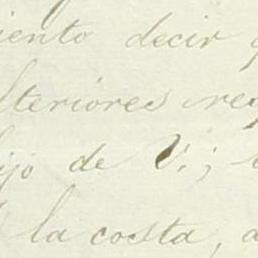 iento decir
lteriores res
ijo de V.;
la costa, a